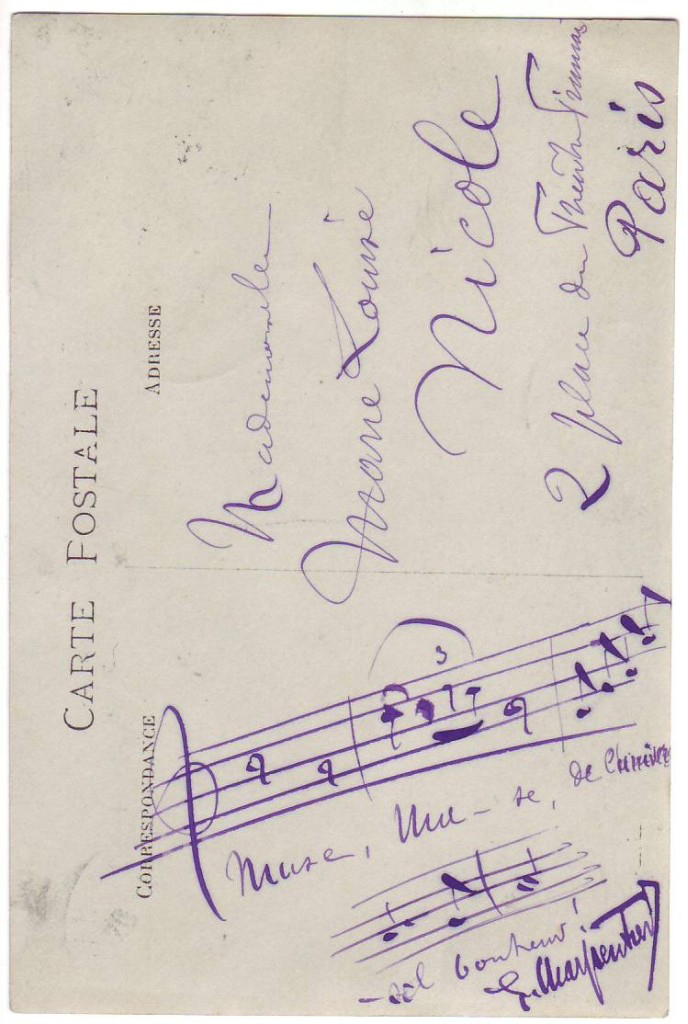 CARTE POSTALE
CORRESPONDANCE
ADRESSE
Muse, Mu-se, de l'univer
3
-sel bonheur!
G. Charpentier
Mademoiselle
Marie Louise
Nicole
2 place du Théâtre Français
Paris